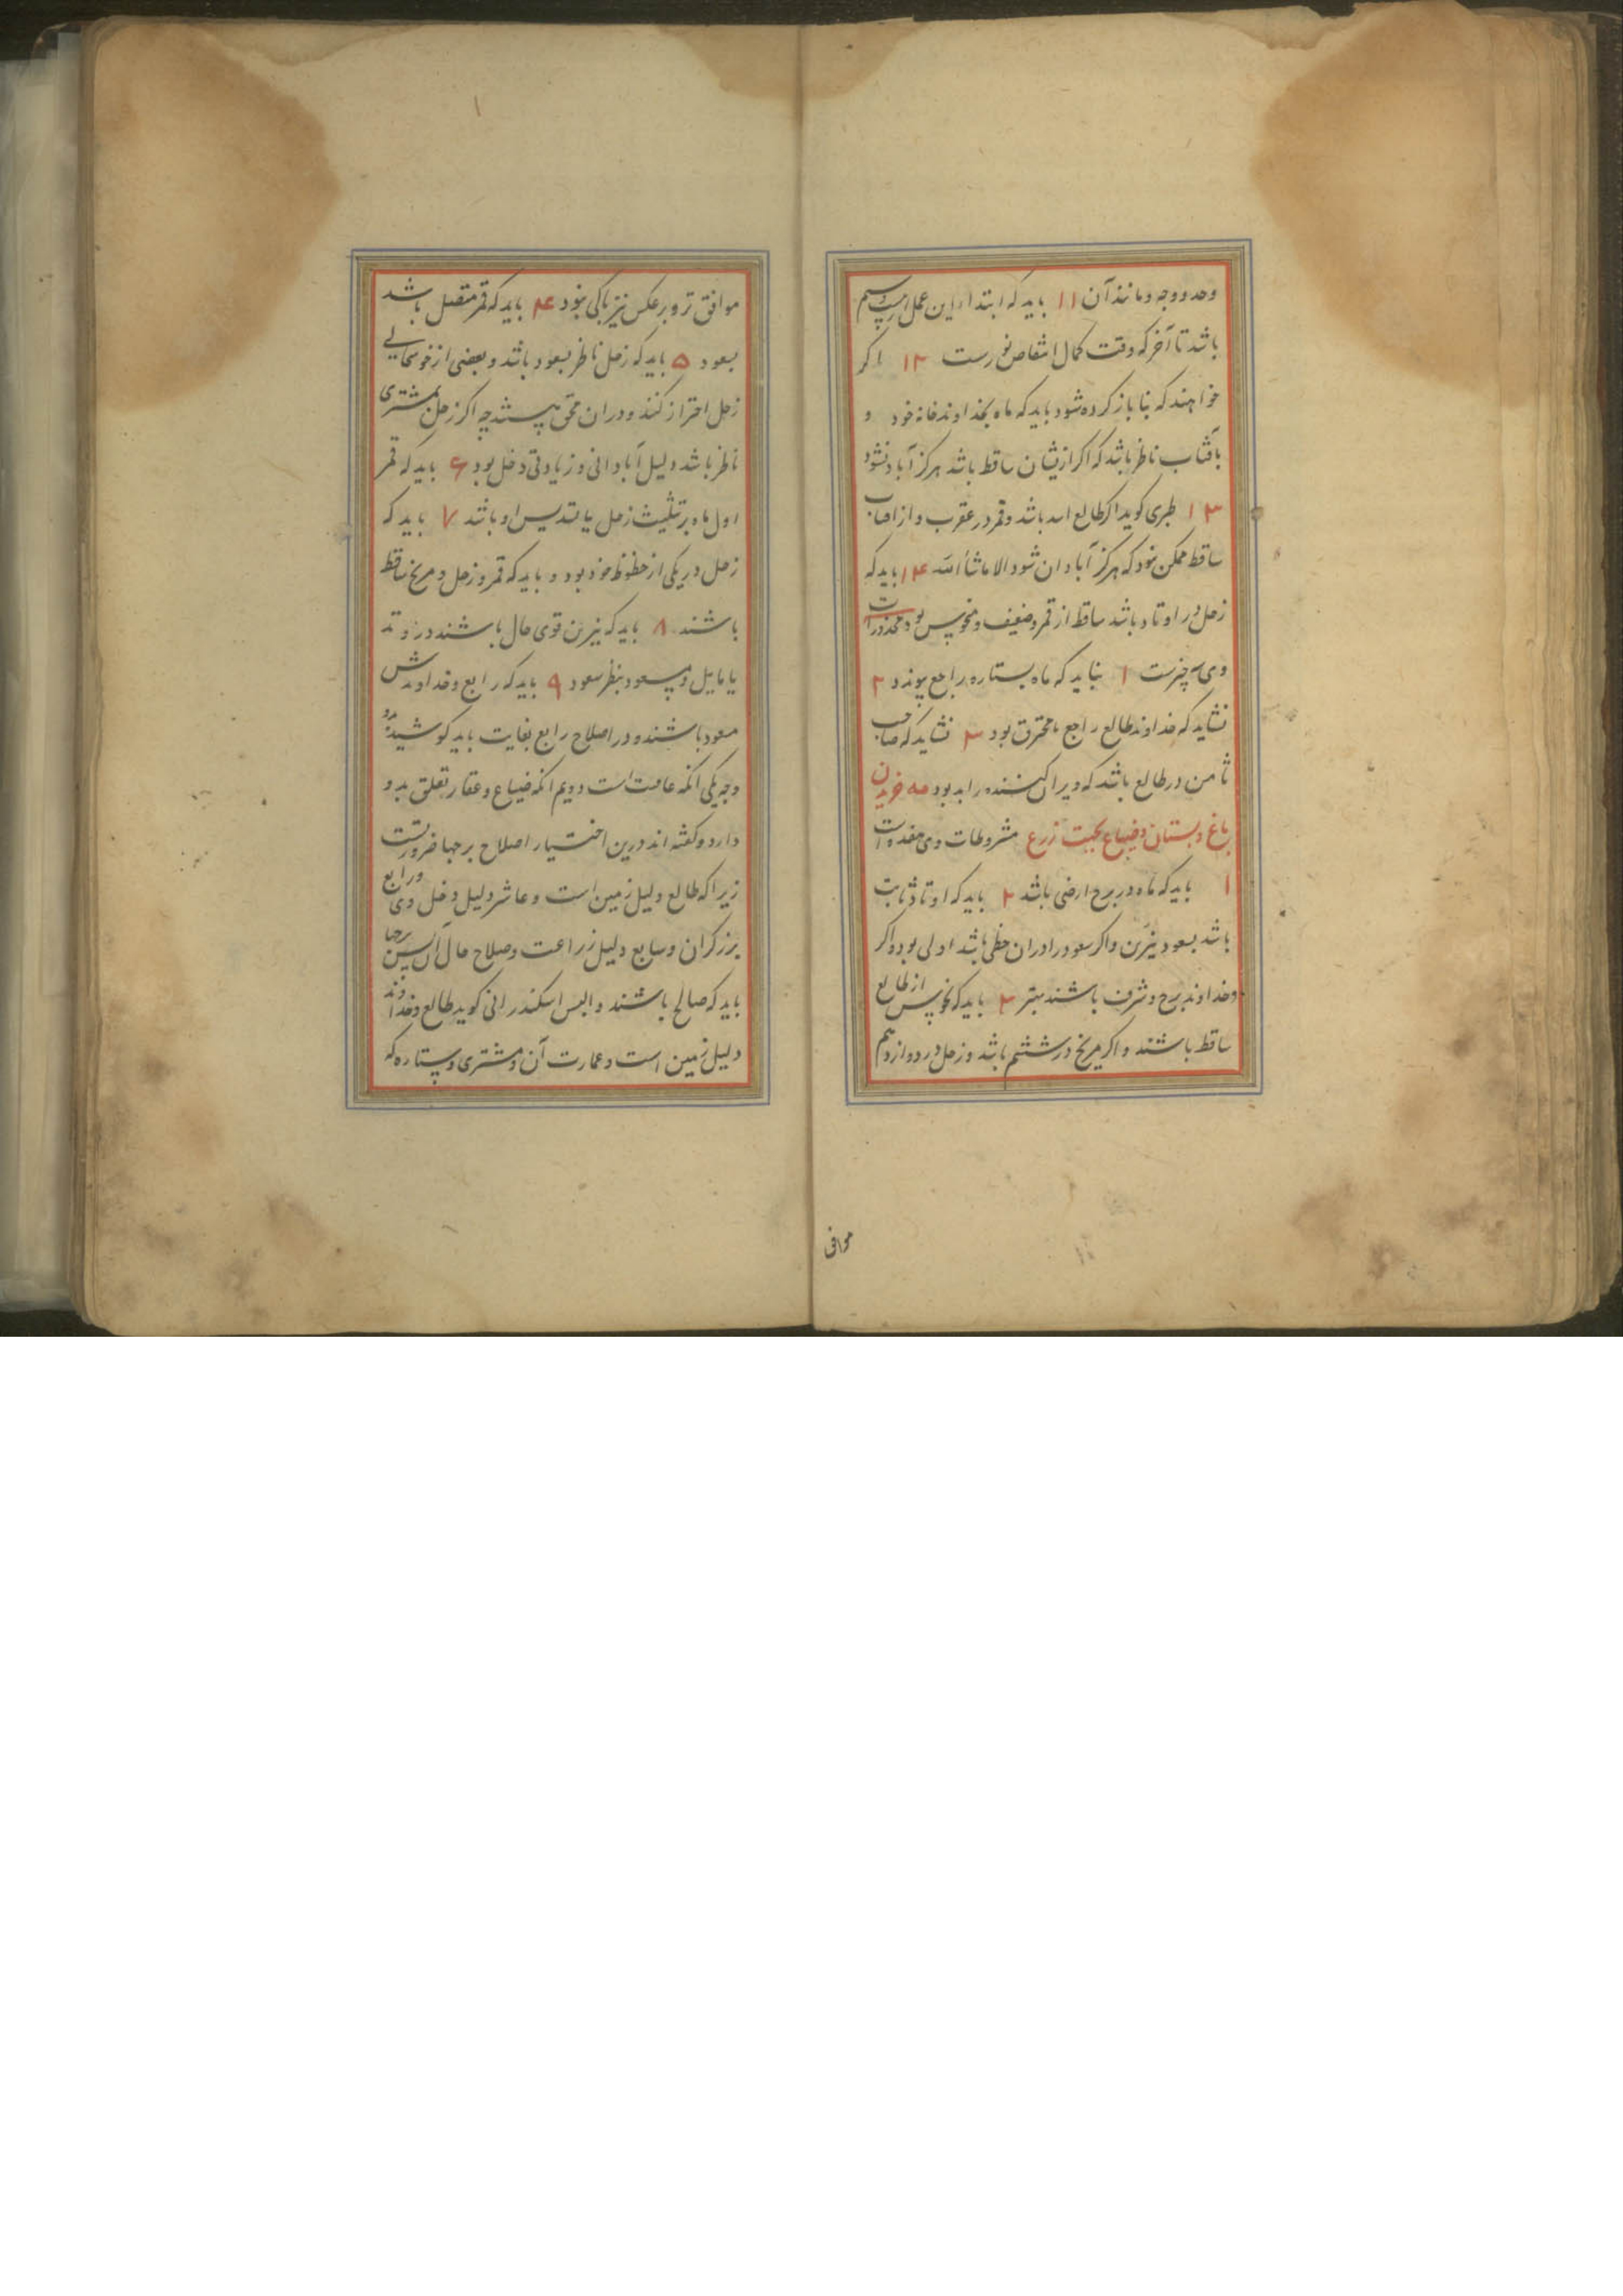 وحد ووجه ومانند آن ١١ باید که ابتداء این عمل از
باشد تا آخر که وقت کمال انتقاص نورست ١٢ اکر
خواهند که بنا باز کرده شود باید که ماه بخداوند خانهٔ خود و
بآفتاب ناظر باشد که اکر ازیشان ساقط باشد هرکز آباد نشود
١٣ طبری کوید اکر طالع اسد باشد وقمر در عقرب و از افتاب
ساقط ممکن نبود که هرکز آبادان شود الا ماشاء الله ١۴ باید که
زحل در اوتاد باشد ساقط از قمر وضعیف ومنحوس بود ومحذورات
وی سه چیزست ١ نباید که ماه بستاره راجع پیوندد ٢
نشاید که خداوند طالع راجع یا محترق بود ٣ نشاید که صاحب
ثامن در طالع باشد که ویران کننده را بد بود خریدن
باغ وبستان وضیاع بجهت زرع مشروطات وی هفده است
١ باید که ماه در برج ارضی باشد ٢ باید که اوتاد ثابت
باشد بسعود نیّرین واکر سعود را دران حظی باشد اولی بود واکر
وخداوند برج وشرف باشند بهتر ٣ باید که نحوس از طالع
ساقط باشند واکر مریخ در ششم باشد وزحل در دوازدهم
موافق
موافق تر وبر عکس نیز باکی نبود ۴ باید که قمر متصل باشد
بسعود ۵ باید که زحل ناظر بسعود باشد وبعضی از خوشحالی
زحل احتراز کنند ودران محق نیستند چه اکر زحل بمشتری
ناظر باشد دلیل آبادانی وزیادتی دخل بود ۶ باید که قمر
اول ماه بر تثلیث زحل یا تسدیس او باشد ٧ باید که
زحل در یکی از حظوظ خود بود و باید که قمر وزحل ومریخ ساقط
باشند ٨ باید که نیرین قوی حال باشند در وتد
یا مایل ومسعود بنظر سعود ٩ باید که رابع وخداوندش
مسعود باشند ودر اصلاح رابع بغایت باید کوشید بدو
وجه یکی انکه عاقبت است دویم انکه ضیاع وعقار تعلق بدو
دارد وکفته اند درین اختیار اصلاح برجها ضرورتست
زیرا که طالع دلیل زمین است وعاشر دلیل دخل وی ورابع
برزکران وسابع دلیل زراعت وصلاح حال آن پس این برجها
باید که صالح باشند و البس اسکندرانی کوید طالع وخداوند
دلیل زمین است وعمارت آن ومشتری وستاره که